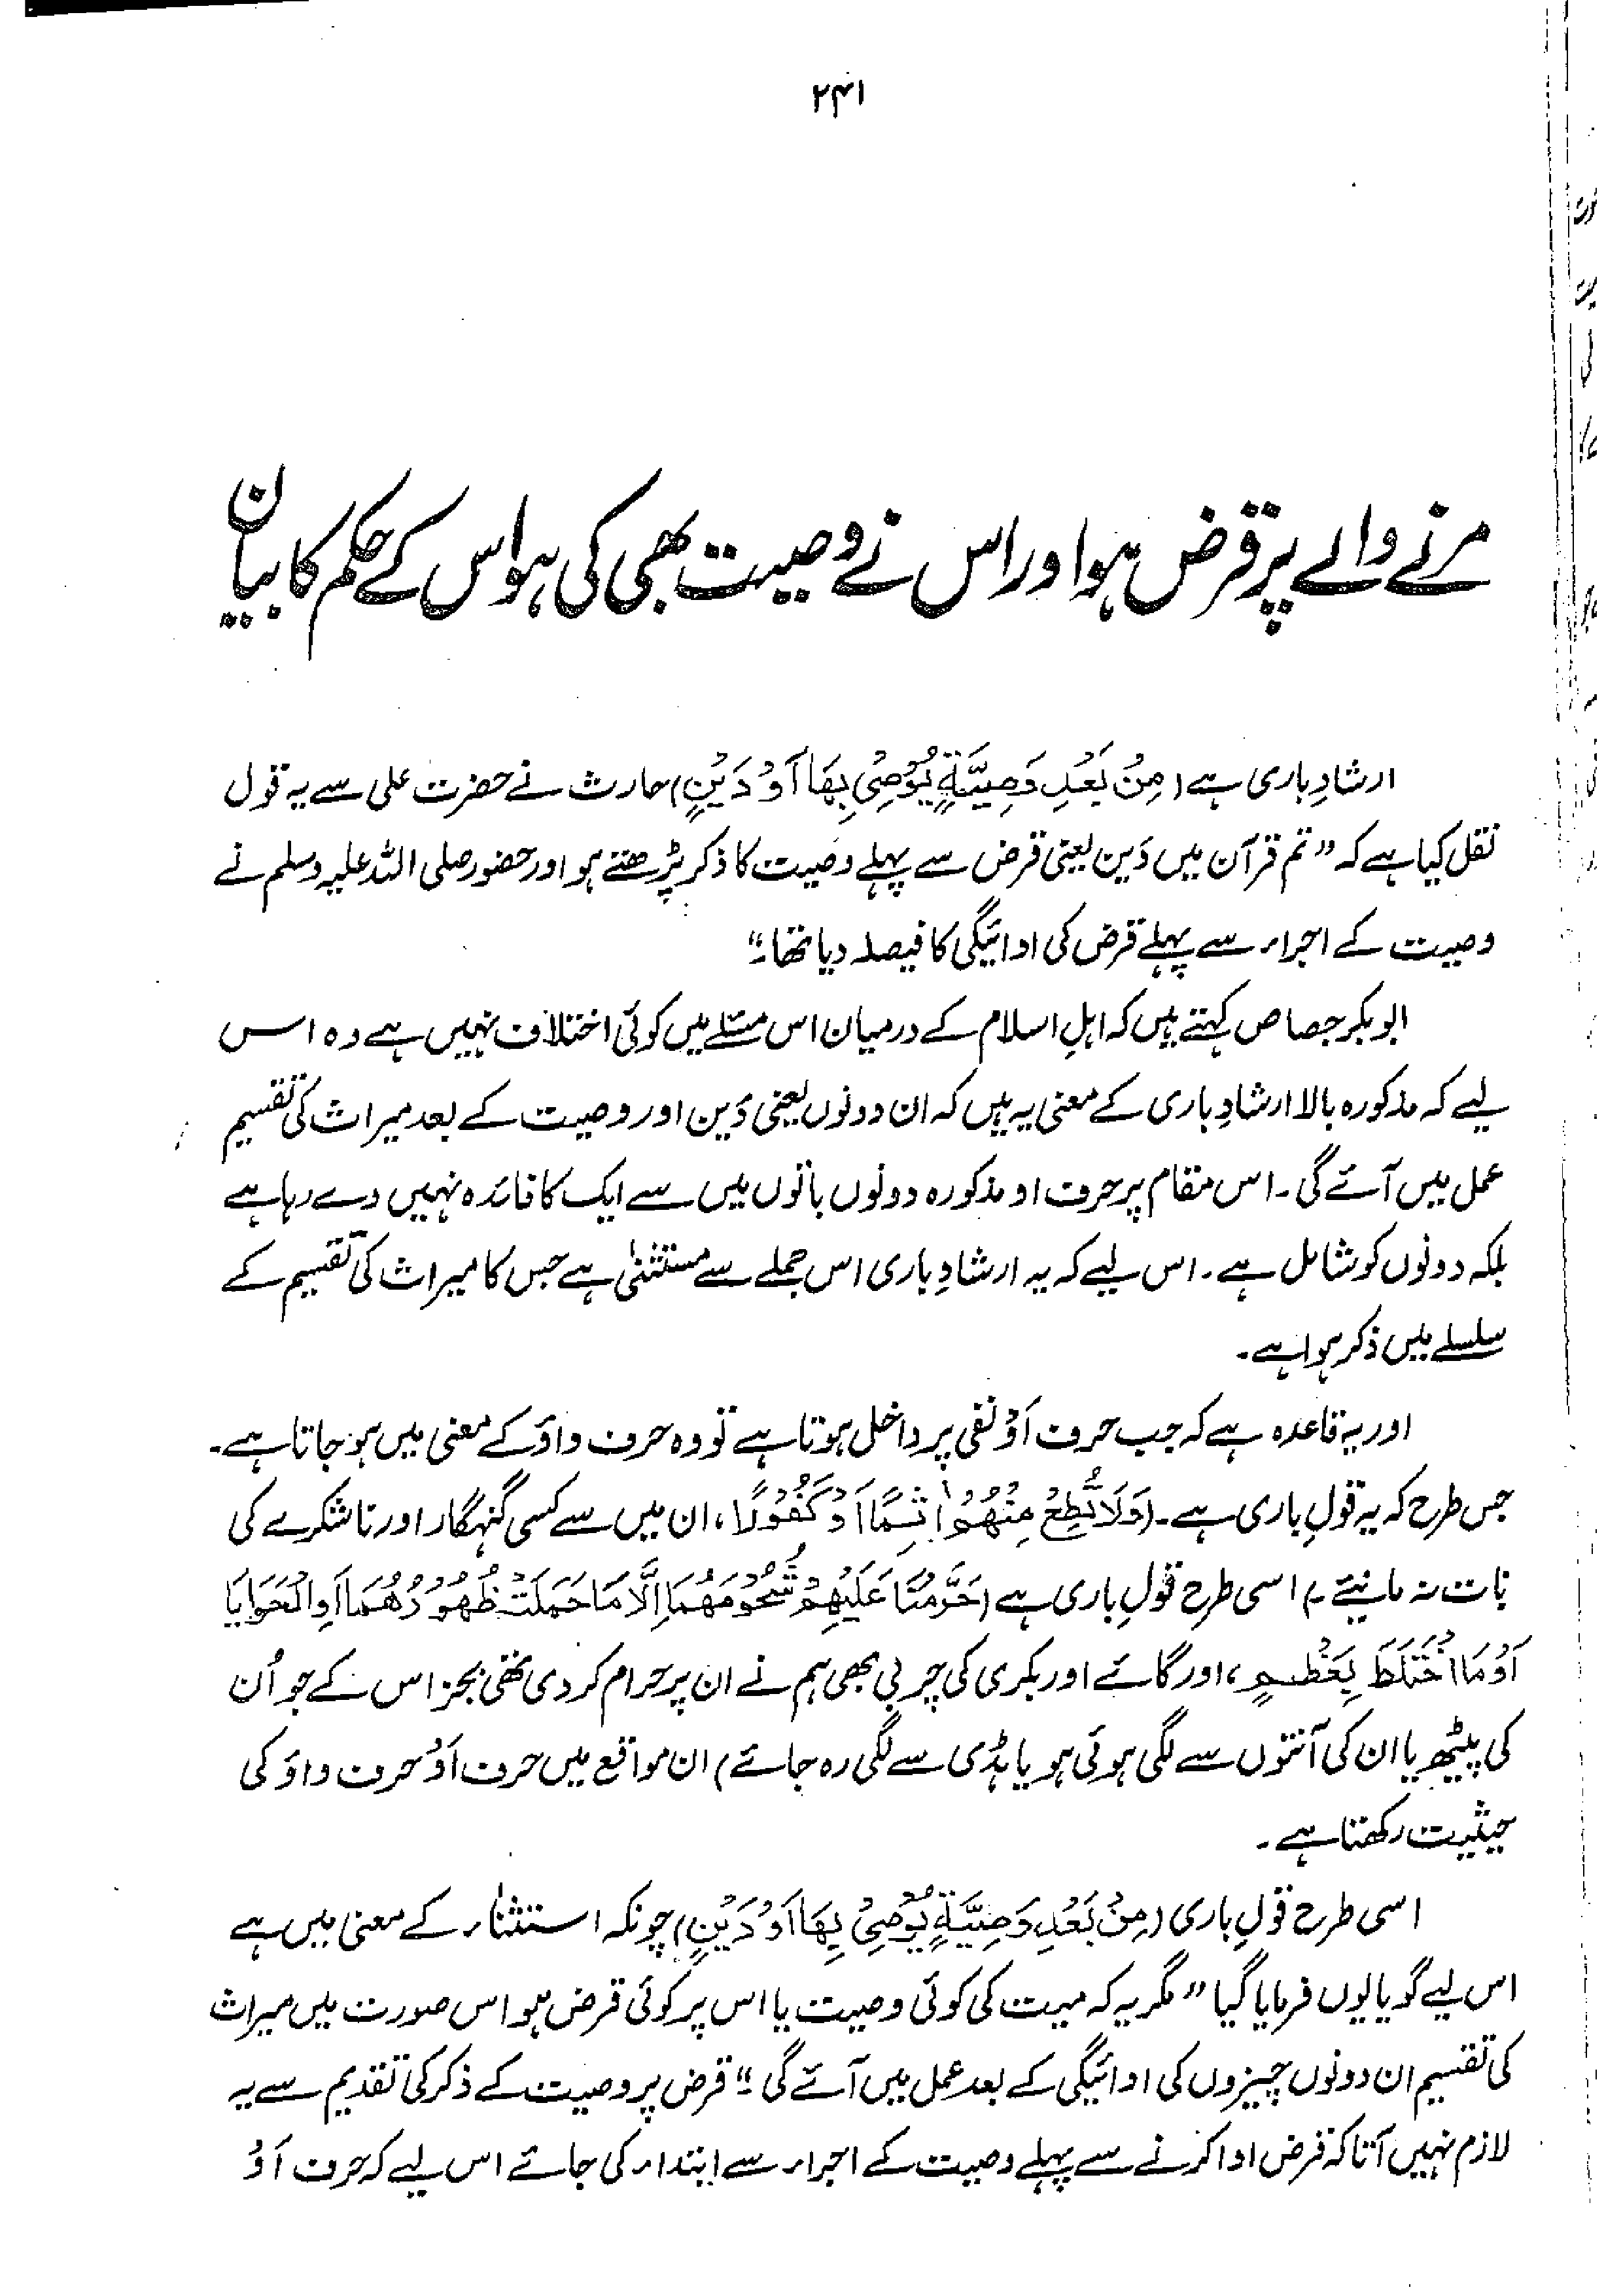 ۲۴۱
مرنے والے پر قرض ہو اور اس نے وصیت بھی کی ہو اس کے حکم کا بیان
ارشادِ باری ہے (مِنْ بَعْدِ وَصِيَّةٍ يُوْصِيْ بِهَا اَوْ دَيْنٍ) حارث نے حضرت علی سے یہ قول
نقل کیا ہے کہ "تم قرآن میں دَین یعنی قرض سے پہلے وصیت کا ذکر پڑھتے ہو اور حضور صلی اللہ علیہ وسلم نے
وصیت کے اجراء سے پہلے قرض کی ادائیگی کا فیصلہ دیا تھا۔"
ابوبکر جصاص کہتے ہیں کہ اہلِ اسلام کے درمیان اس مسئلے میں کوئی اختلاف نہیں ہے وہ اس
لیے کہ مذکورہ بالا ارشادِ باری کے معنی یہ ہیں کہ ان دونوں یعنی دَین اور وصیت کے بعد میراث کی تقسیم
عمل میں آئے گی۔ اس مقام پر حرف او مذکورہ دونوں باتوں میں سے ایک کا فائدہ نہیں دے رہا ہے
بلکہ دونوں کو شامل ہے۔ اس لیے کہ یہ ارشادِ باری اس جملے سے مستثنیٰ ہے جس کا میراث کی تقسیم کے
سلسلے میں ذکر ہوا ہے۔
اور یہ قاعدہ ہے کہ جب حرف اَوْ نفی پر داخل ہوتا ہے تو وہ حرف واؤ کے معنی میں ہو جاتا ہے۔
جس طرح کہ یہ قولِ باری ہے۔ (وَلَا تُطِعْ مِنْهُمْ اٰثِمًا اَوْ كَفُوْرًا، ان میں سے کسی گنہگار اور ناشکرے کی
بات نہ مانیئے۔) اسی طرح قولِ باری ہے (حَرَّمْنَا عَلَيْهِمْ شُحُوْمَهُمَا اِلَّا مَا حَمَلَتْ ظُهُوْرُهُمَا اَوِ الْحَوَايَا
اَوْ مَا اخْتَلَطَ بِعَظْمٍ، اور گائے اور بکری کی چربی بھی ہم نے ان پر حرام کر دی تھی بجز اس کے جو اُن
کی پیٹھ یا ان کی آنتوں سے لگی ہوئی ہو یا ہڈی سے لگی رہ جائے) ان مواقع میں حرف اَوْ حرف واؤ کی
حیثیت رکھتا ہے۔
اسی طرح قولِ باری (مِنْ بَعْدِ وَصِيَّةٍ يُوْصِيْ بِهَا اَوْ دَيْنٍ) چونکہ استثناء کے معنی میں ہے
اس لیے گویا یوں فرمایا گیا "مگر یہ کہ میت کی کوئی وصیت یا اس پر کوئی قرض ہو اس صورت میں میراث
کی تقسیم ان دونوں چیزوں کی ادائیگی کے بعد عمل میں آئے گی۔" قرض پر وصیت کے ذکر کی تقدیم سے یہ
لازم نہیں آتا کہ قرض ادا کرنے سے پہلے وصیت کے اجراء سے ابتداء کی جائے اس لیے کہ حرف اَوْ